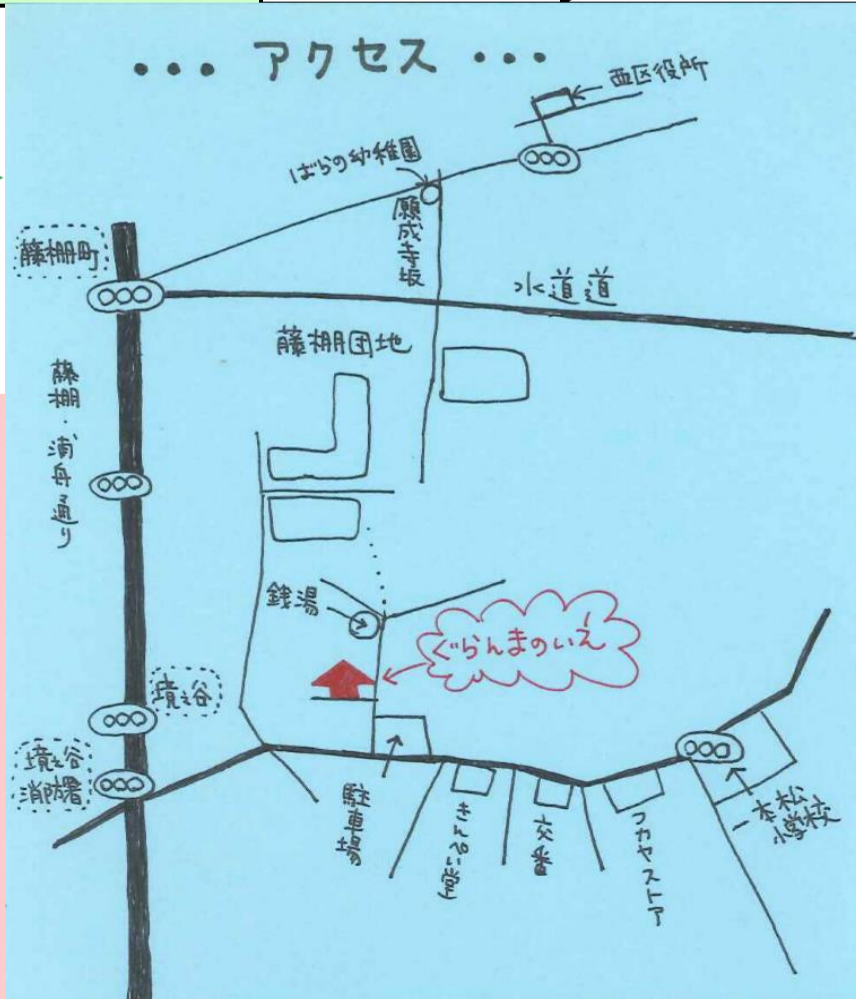 ••• アクセス •••
西区役所
ばらの幼稚園
願成寺坂
藤棚町
水道道
藤棚団地
藤棚・浦舟通り
銭湯
ぐらんまのいえ
境之谷
境之谷
消防署
駐車場
交番
フカヤストア
一本松
小学校